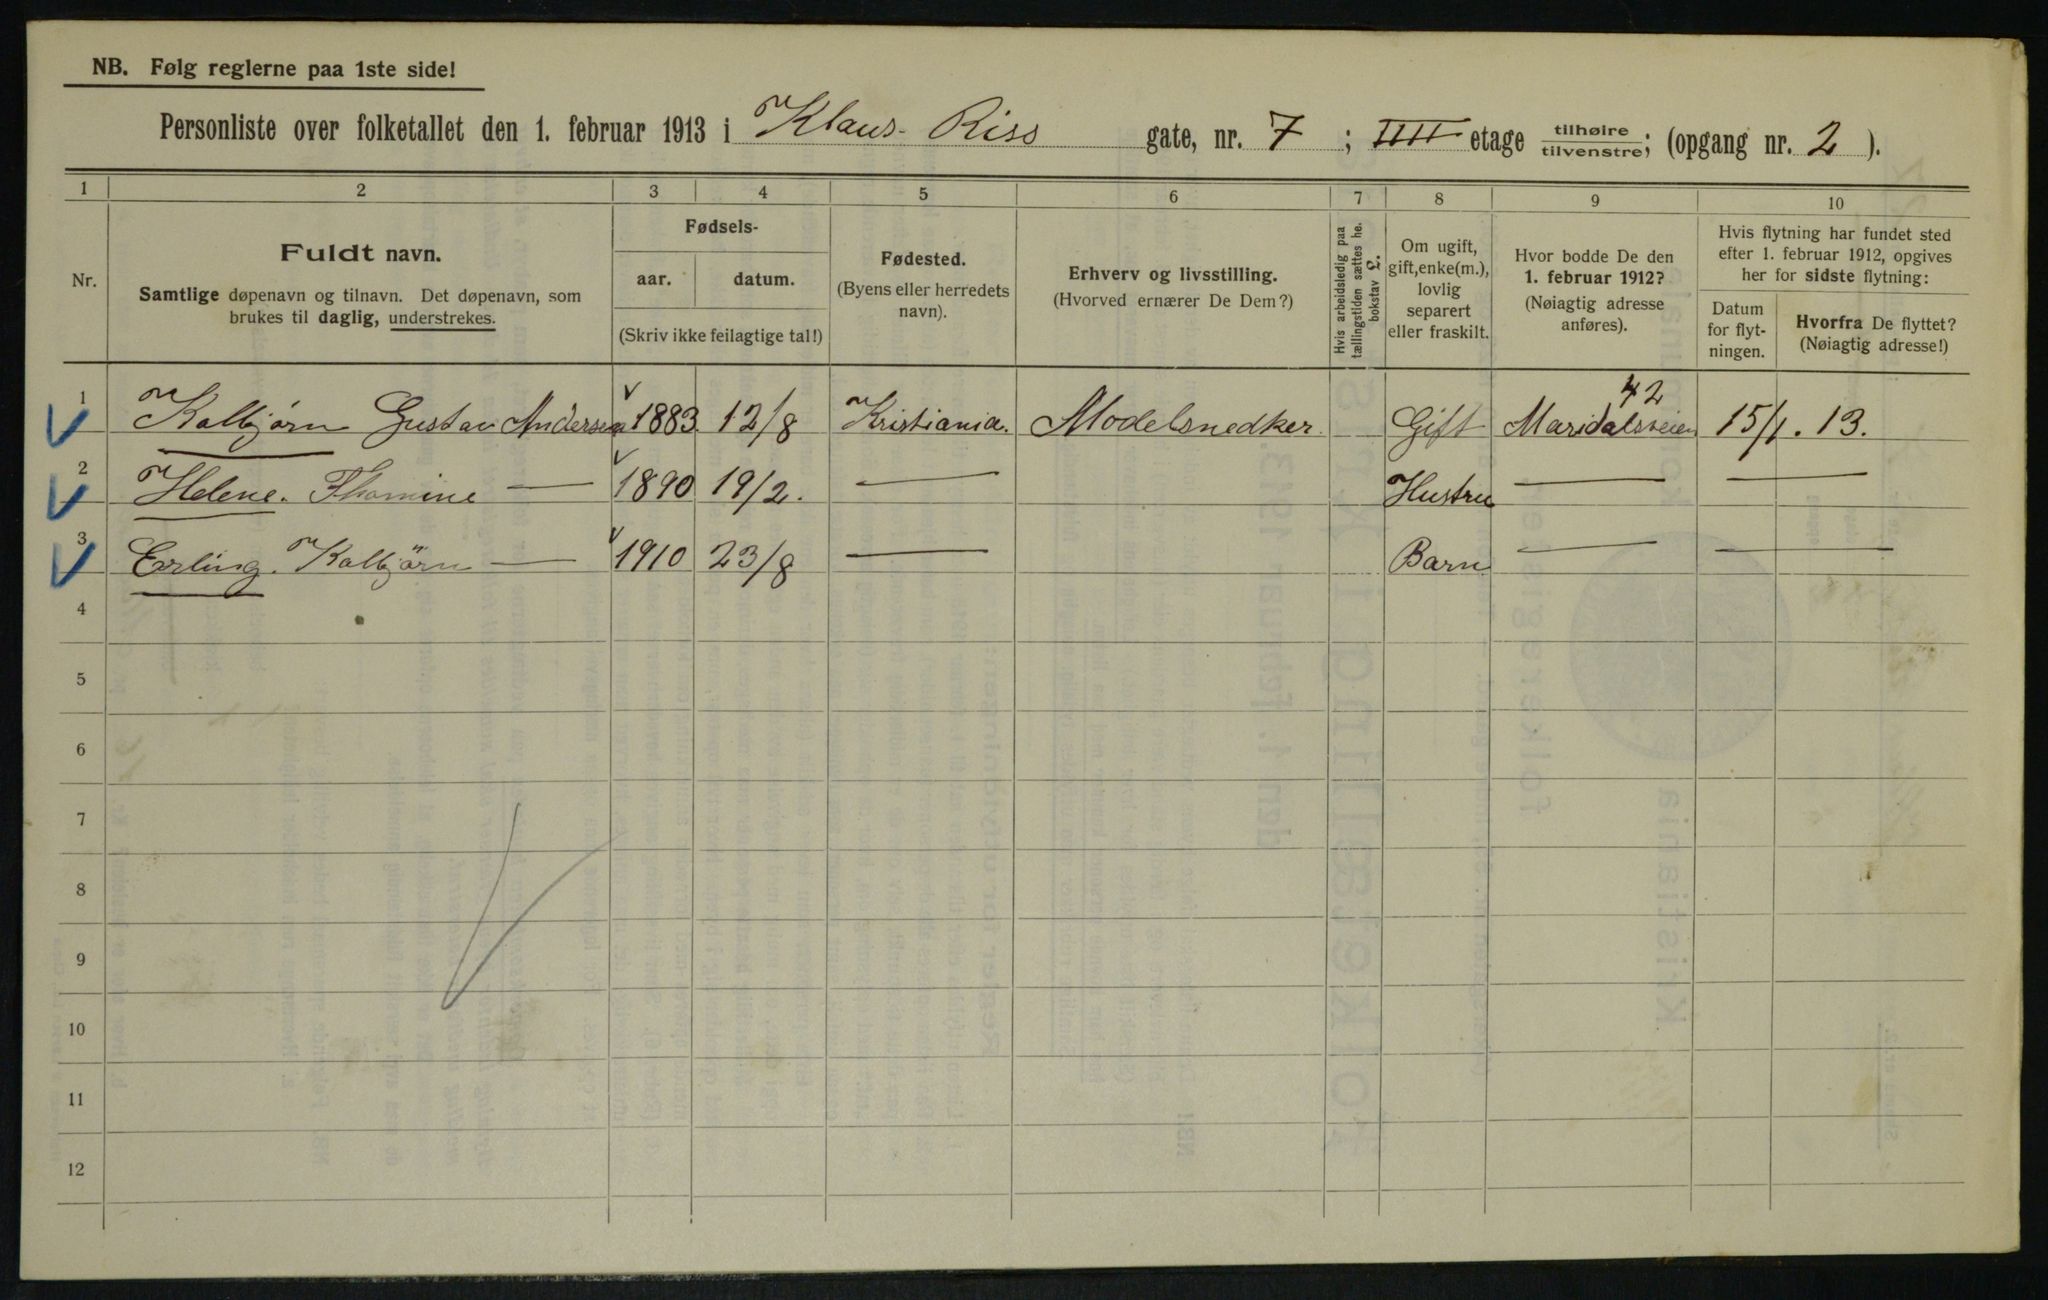 NB. Følg reglerne paa 1ste side!
Personliste over folketallet den 1. februar 1913 i Klaus Riss gate, nr. 7 ; IIII etage tilhøire/tilvenstre; (opgang nr. 2 ).
1 2 3 4 5 6 7 8 9 10
Nr.
Fuldt navn.
Samtlige døpenavn og tilnavn. Det døpenavn, som
brukes til daglig, understrekes.
Fødsels-
aar. datum.
(Skriv ikke feilagtige tal!)
Fødested.
(Byens eller herredets
navn).
Erhverv og livsstilling.
(Hvorved ernærer De Dem?)
Hvis arbeidsledig paa
tællingstiden sættes he.
bokstav L.
Om ugift,
gift, enke(m.),
lovlig
separert
eller fraskilt.
Hvor bodde De den
1. februar 1912?
(Nøiagtig adresse
anføres).
Hvis flytning har fundet sted
efter 1. februar 1912, opgives
her for sidste flytning:
Datum
for flyt-
ningen.
Hvorfra De flyttet?
(Nøiagtig adresse!)
1 Kolbjørn Gustav Andersen 1883. 12/8 Kristiania. Modelsnedker Gift Maridalsveien 42 15/1. 13.
2 Helene. Thomine — 1890 19/2. — Hustru — —
3 Erling. Kolbjörn — 1910 23/8 — Barn — —
4
5
6
7
8
9
10
11
12